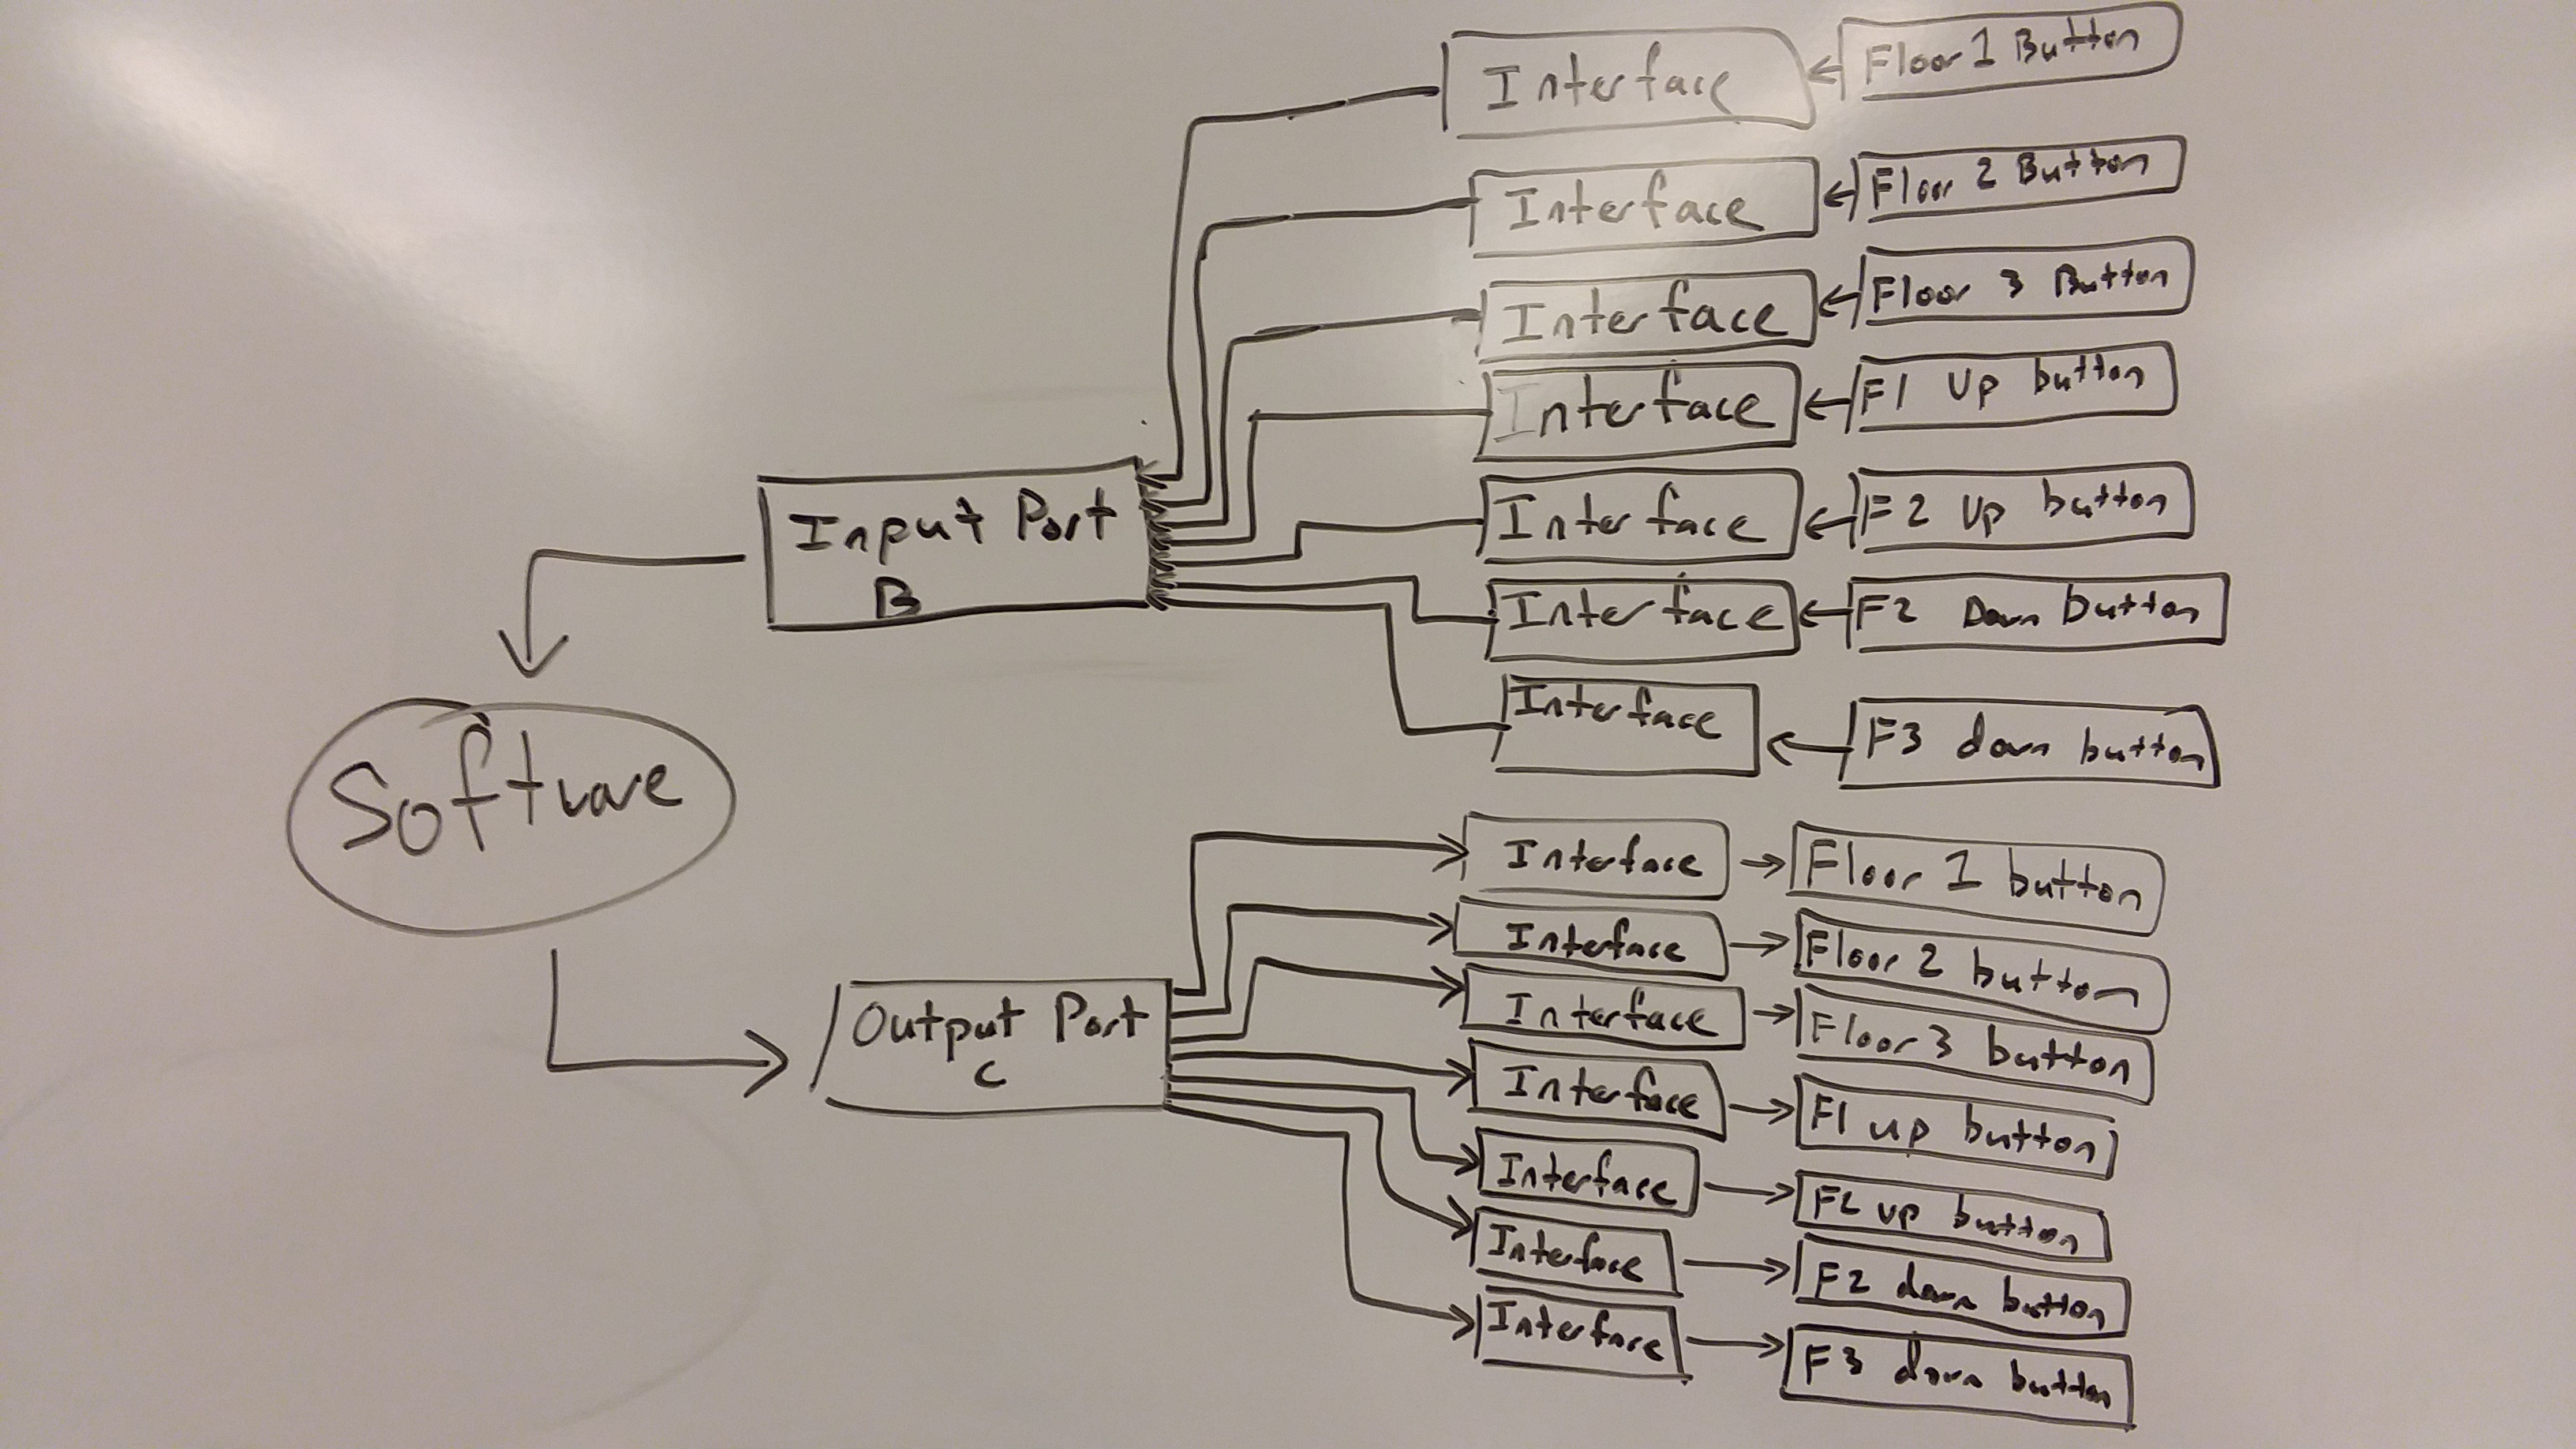 Interface
Floor 1 Button
Interface
Floor 2 Button
Interface
Floor 3 Button
Interface
F1 Up button
Interface
F2 Up button
Interface
F2 Down button
Interface
F3 down button
Input Port
B
Software
Output Port
C
Interface
Floor 1 button
Interface
Floor 2 button
Interface
Floor 3 button
Interface
F1 up button
Interface
F2 up button
Interface
F2 down button
Interface
F3 down button